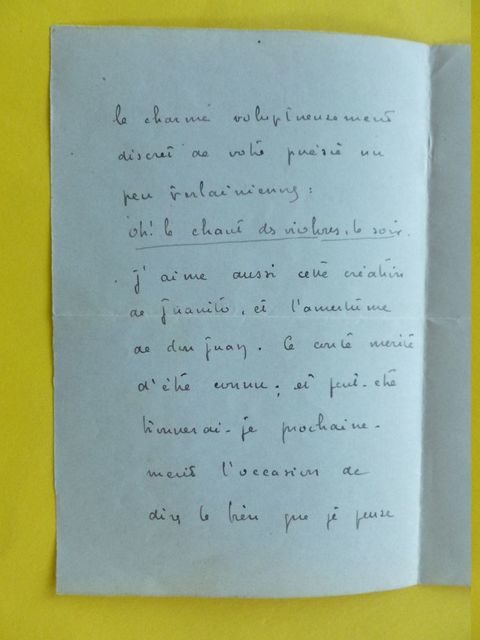 le charme voluptueusement
discret de votre poésie un
peu Verlainienne :
oh! le chant des violons, le soir.
j'aime aussi cette création
de Juanito, et l'amertume
de don Juan. Ce conte mérite
d'être connu ; et peut-être
trouverai-je prochaine-
ment l'occasion de
dire le bien que je pense